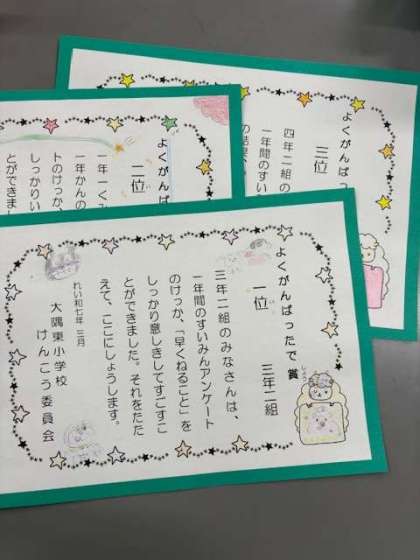 よくがんばったで賞
一位　三年二組
三年二組のみなさんは、
一年間のすいみんアンケート
のけっか、「早くねること」を
しっかり意しきしてすごすこ
とができました。それをたた
えて、ここにしょうします。
れい和七年 三月
大隅東小学校
けんこう委員会
よくがんば
二位
一年一くみ
一年かんの
トのけっか、
しっかりい
とができまし
よくがんばったで賞
三位
四年二組の
一年間のすい
の結果、